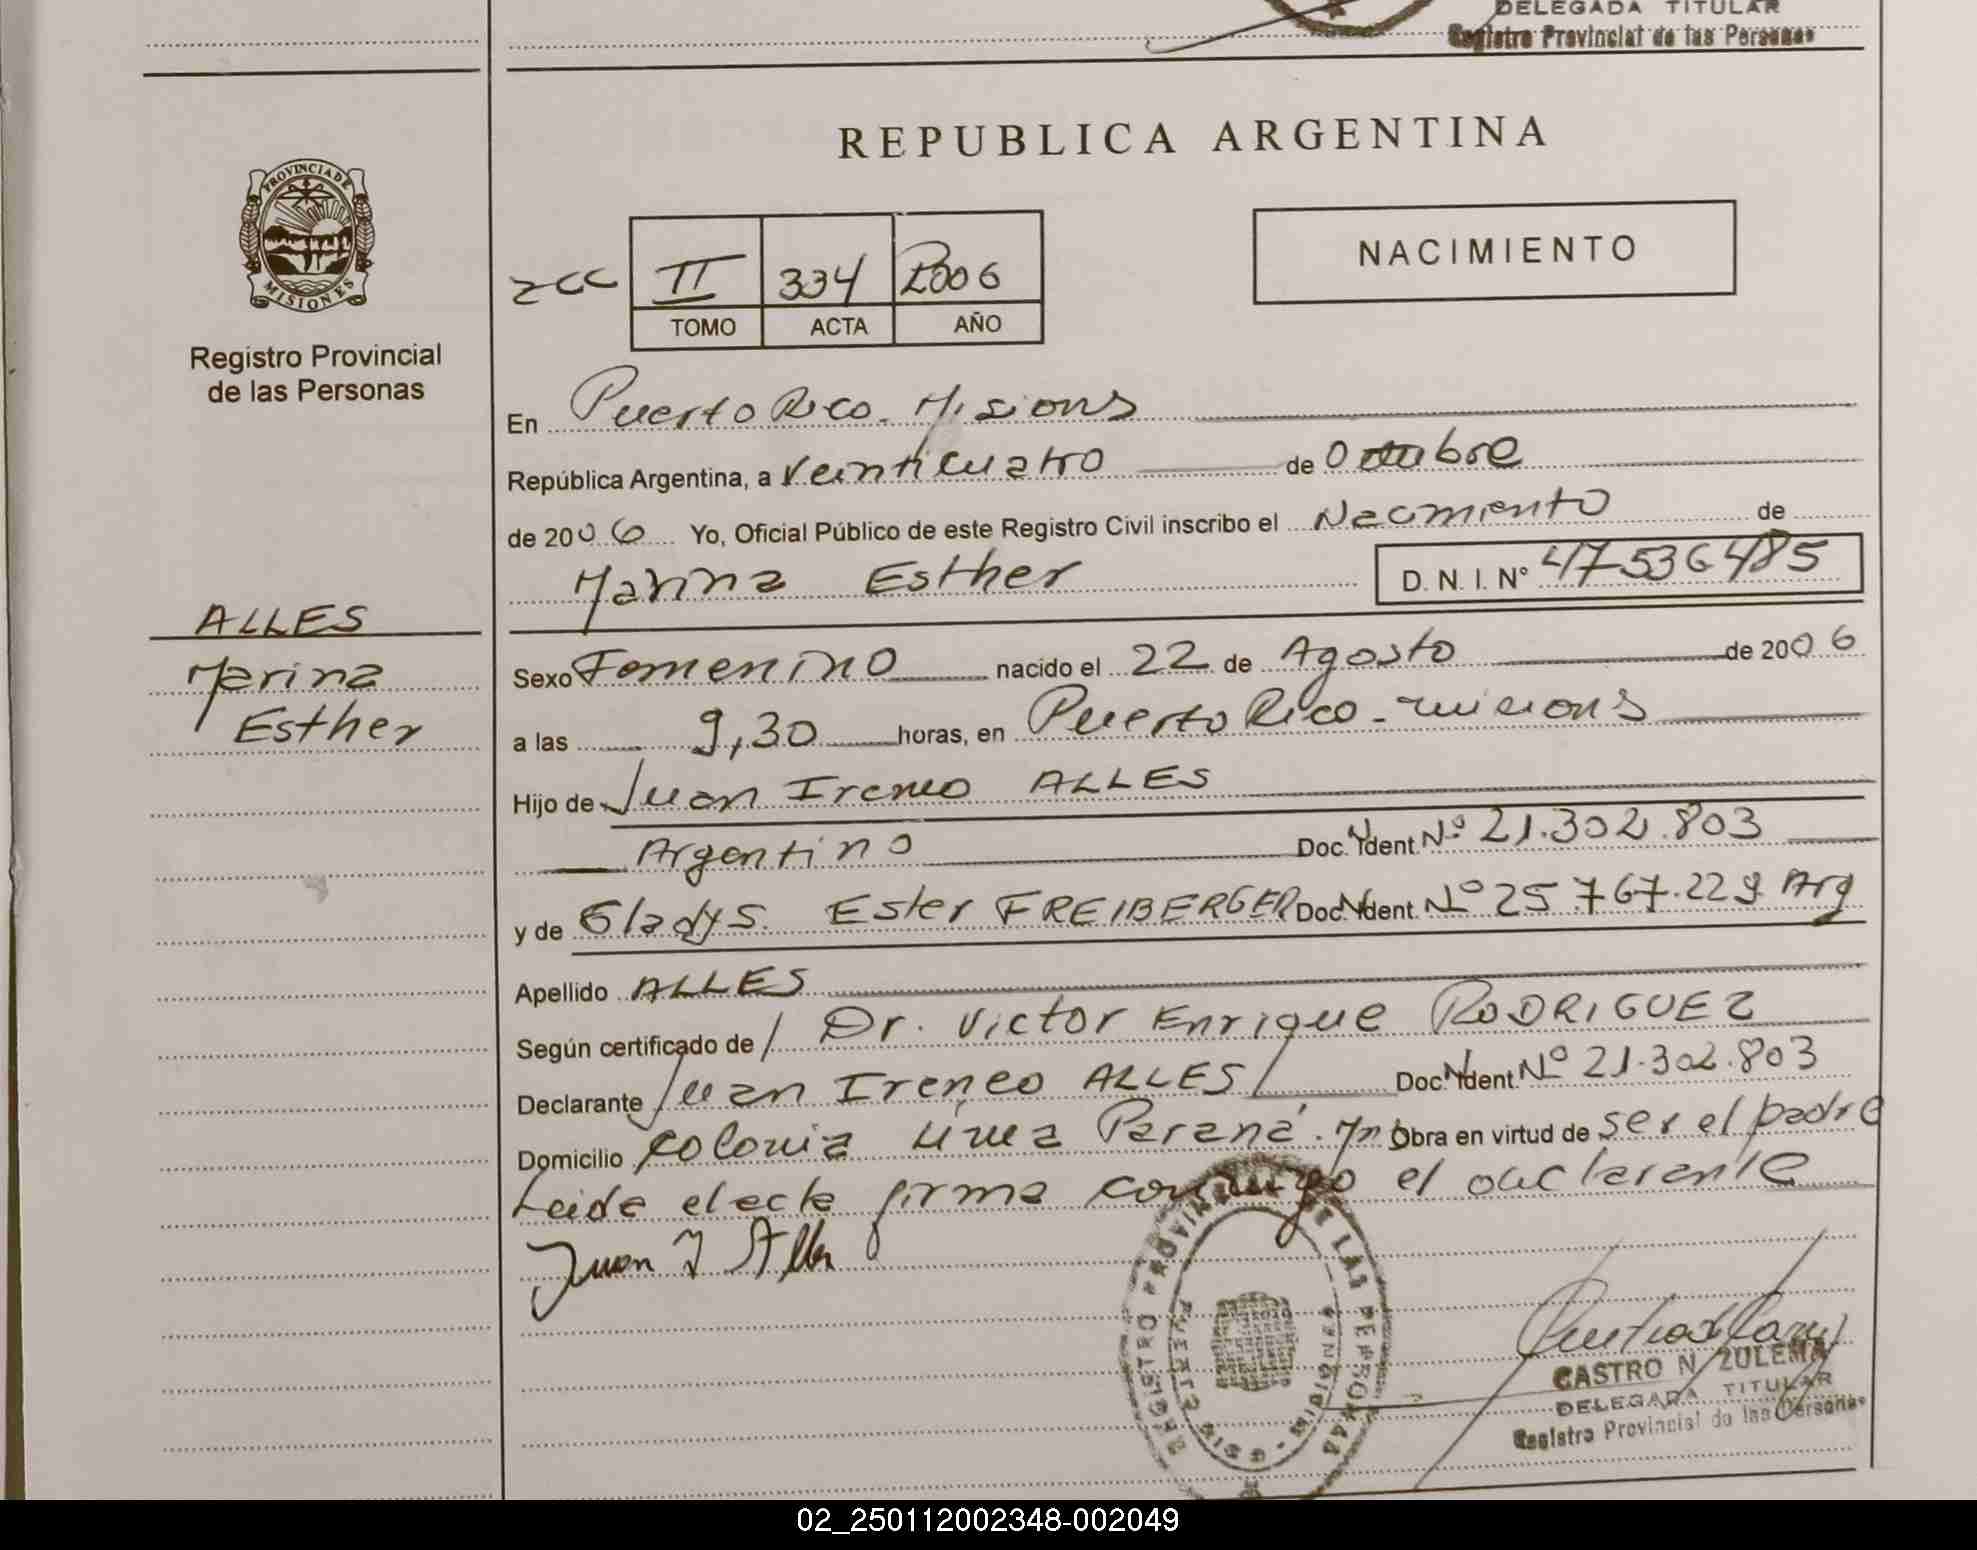 DELEGADA TITULAR
Registro Provincial de las Personas
REPUBLICA ARGENTINA
PROVINCIA DE
MISIONES
Registro Provincial
de las Personas
II 334 2006
TOMO ACTA AÑO
NACIMIENTO
En Puerto Rico. Misions
República Argentina, a veinticuatro de Octubre
de 2006 Yo, Oficial Público de este Registro Civil inscribo el Nacimiento de
Marina Esther D. N. I. N° 47536485
ALLES
Marina
Esther
Sexo Femenino nacido el 22 de Agosto de 2006
a las 9,30 horas, en Puerto Rico - misions
Hijo de Juan Ireneo ALLES
Argentino Doc. Ident. N° 21.302.803
y de Gladys. Ester FREIBERGER Doc. Ident. N° 25.767.229 Arg
Apellido ALLES
Según certificado de Dr. Victor Enrique RODRIGUEZ
Declarante Juan Ireneo ALLES Doc. Ident. N° 21.302.803
Domicilio Colonia Línea Paraná. Mns Obra en virtud de ser el padre
Leida el acta firma conmigo el declarante
Juan I Alles
REGISTRO PROVINCIAL DE LAS PERSONAS
PUERTO RICO - MISIONES
CASTRO N. ZULEMA
DELEGADA TITULAR
Registro Provincial de las Personas
02_250112002348-002049